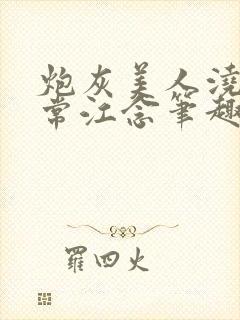 炮灰美人浇
常江念笔趣
羅四火